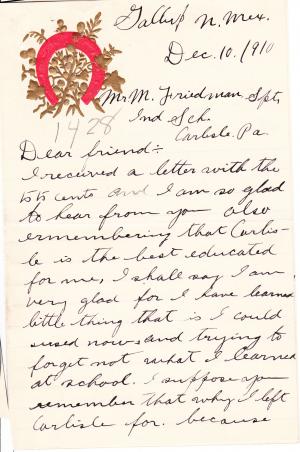 Gallup N. Mex.
Dec. 10./910
Mr. M. Friedman. Spt.
Ind Sch.
Carlisle. Pa.
1428
Dear friend:-
I received a letter with the
55 cents and I am so glad
to hear from you also
ermembering that Carlis-
le is the best educated
for me, I shall say I am
very glad for I have learned
little thing that is I could
used now and trying to
forget not what I learned
at school. I suppose you
remember that why I left
Carlisle for. because